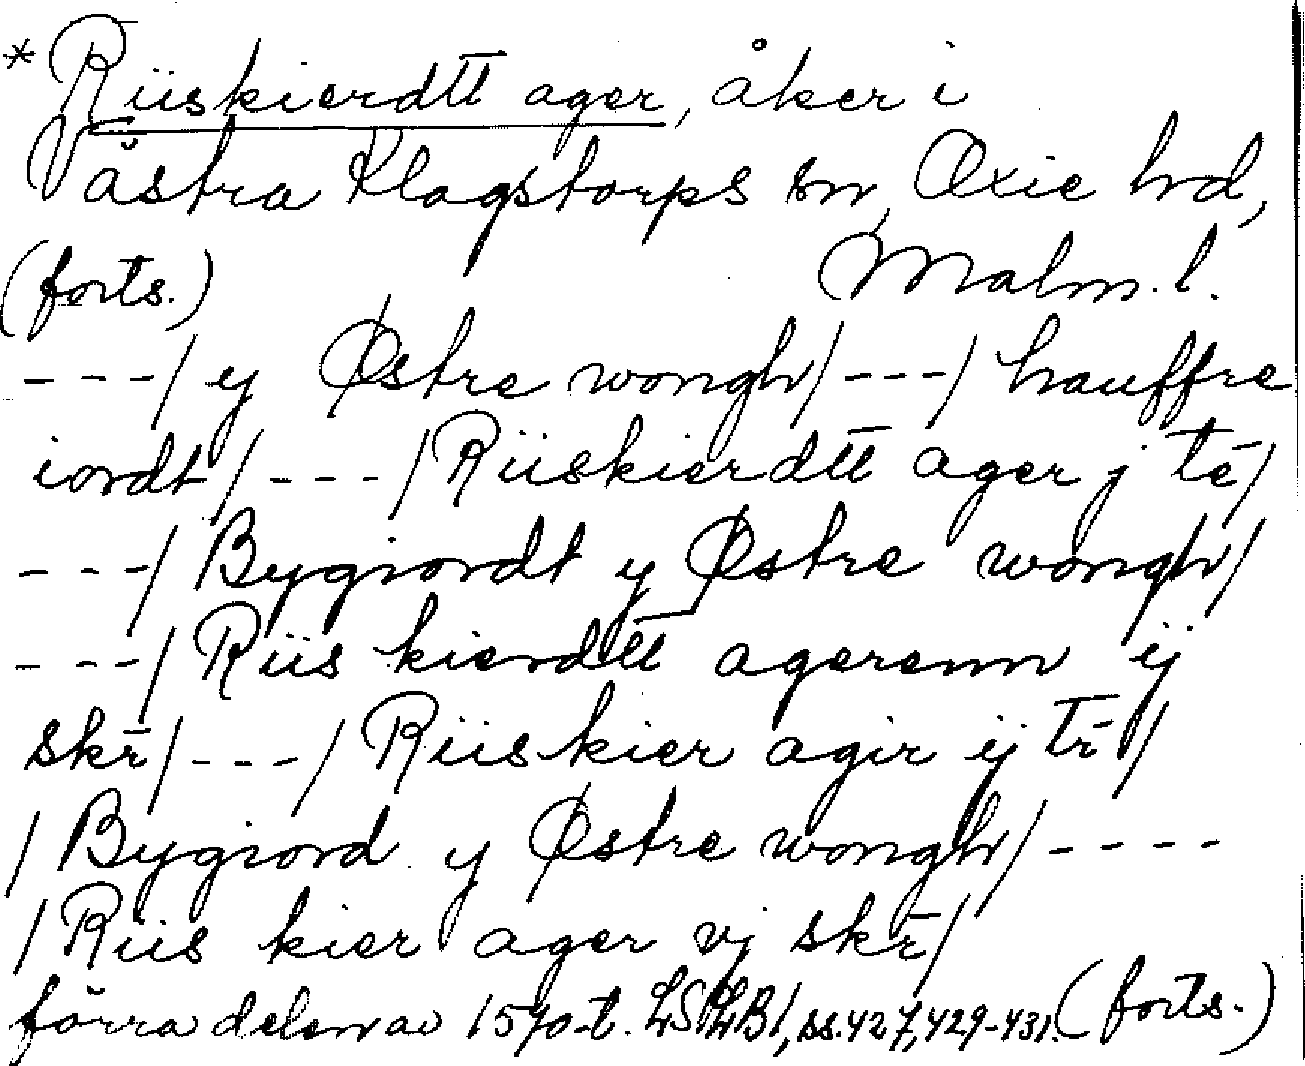 * Riiskierdtt ager, åker i
Västra Klagstorps sn, Oxie hd,
(forts.) Malm. l.
---/ y Østre wongh/---/ hauffre
iordt/---/ Riiskierdtt ager j tē/
---/ Bygiordt y Østre wongh/
---/ Riis kierdtt agerenn ij
skr̄/---/ Riiskier agir ij tr̄/
/ Bygiord y Østre wongh/----
/ Riis kier ager vj skr̄/
förra delen av 1570-t. LSLB1, ss. 427, 429-431. (forts.)